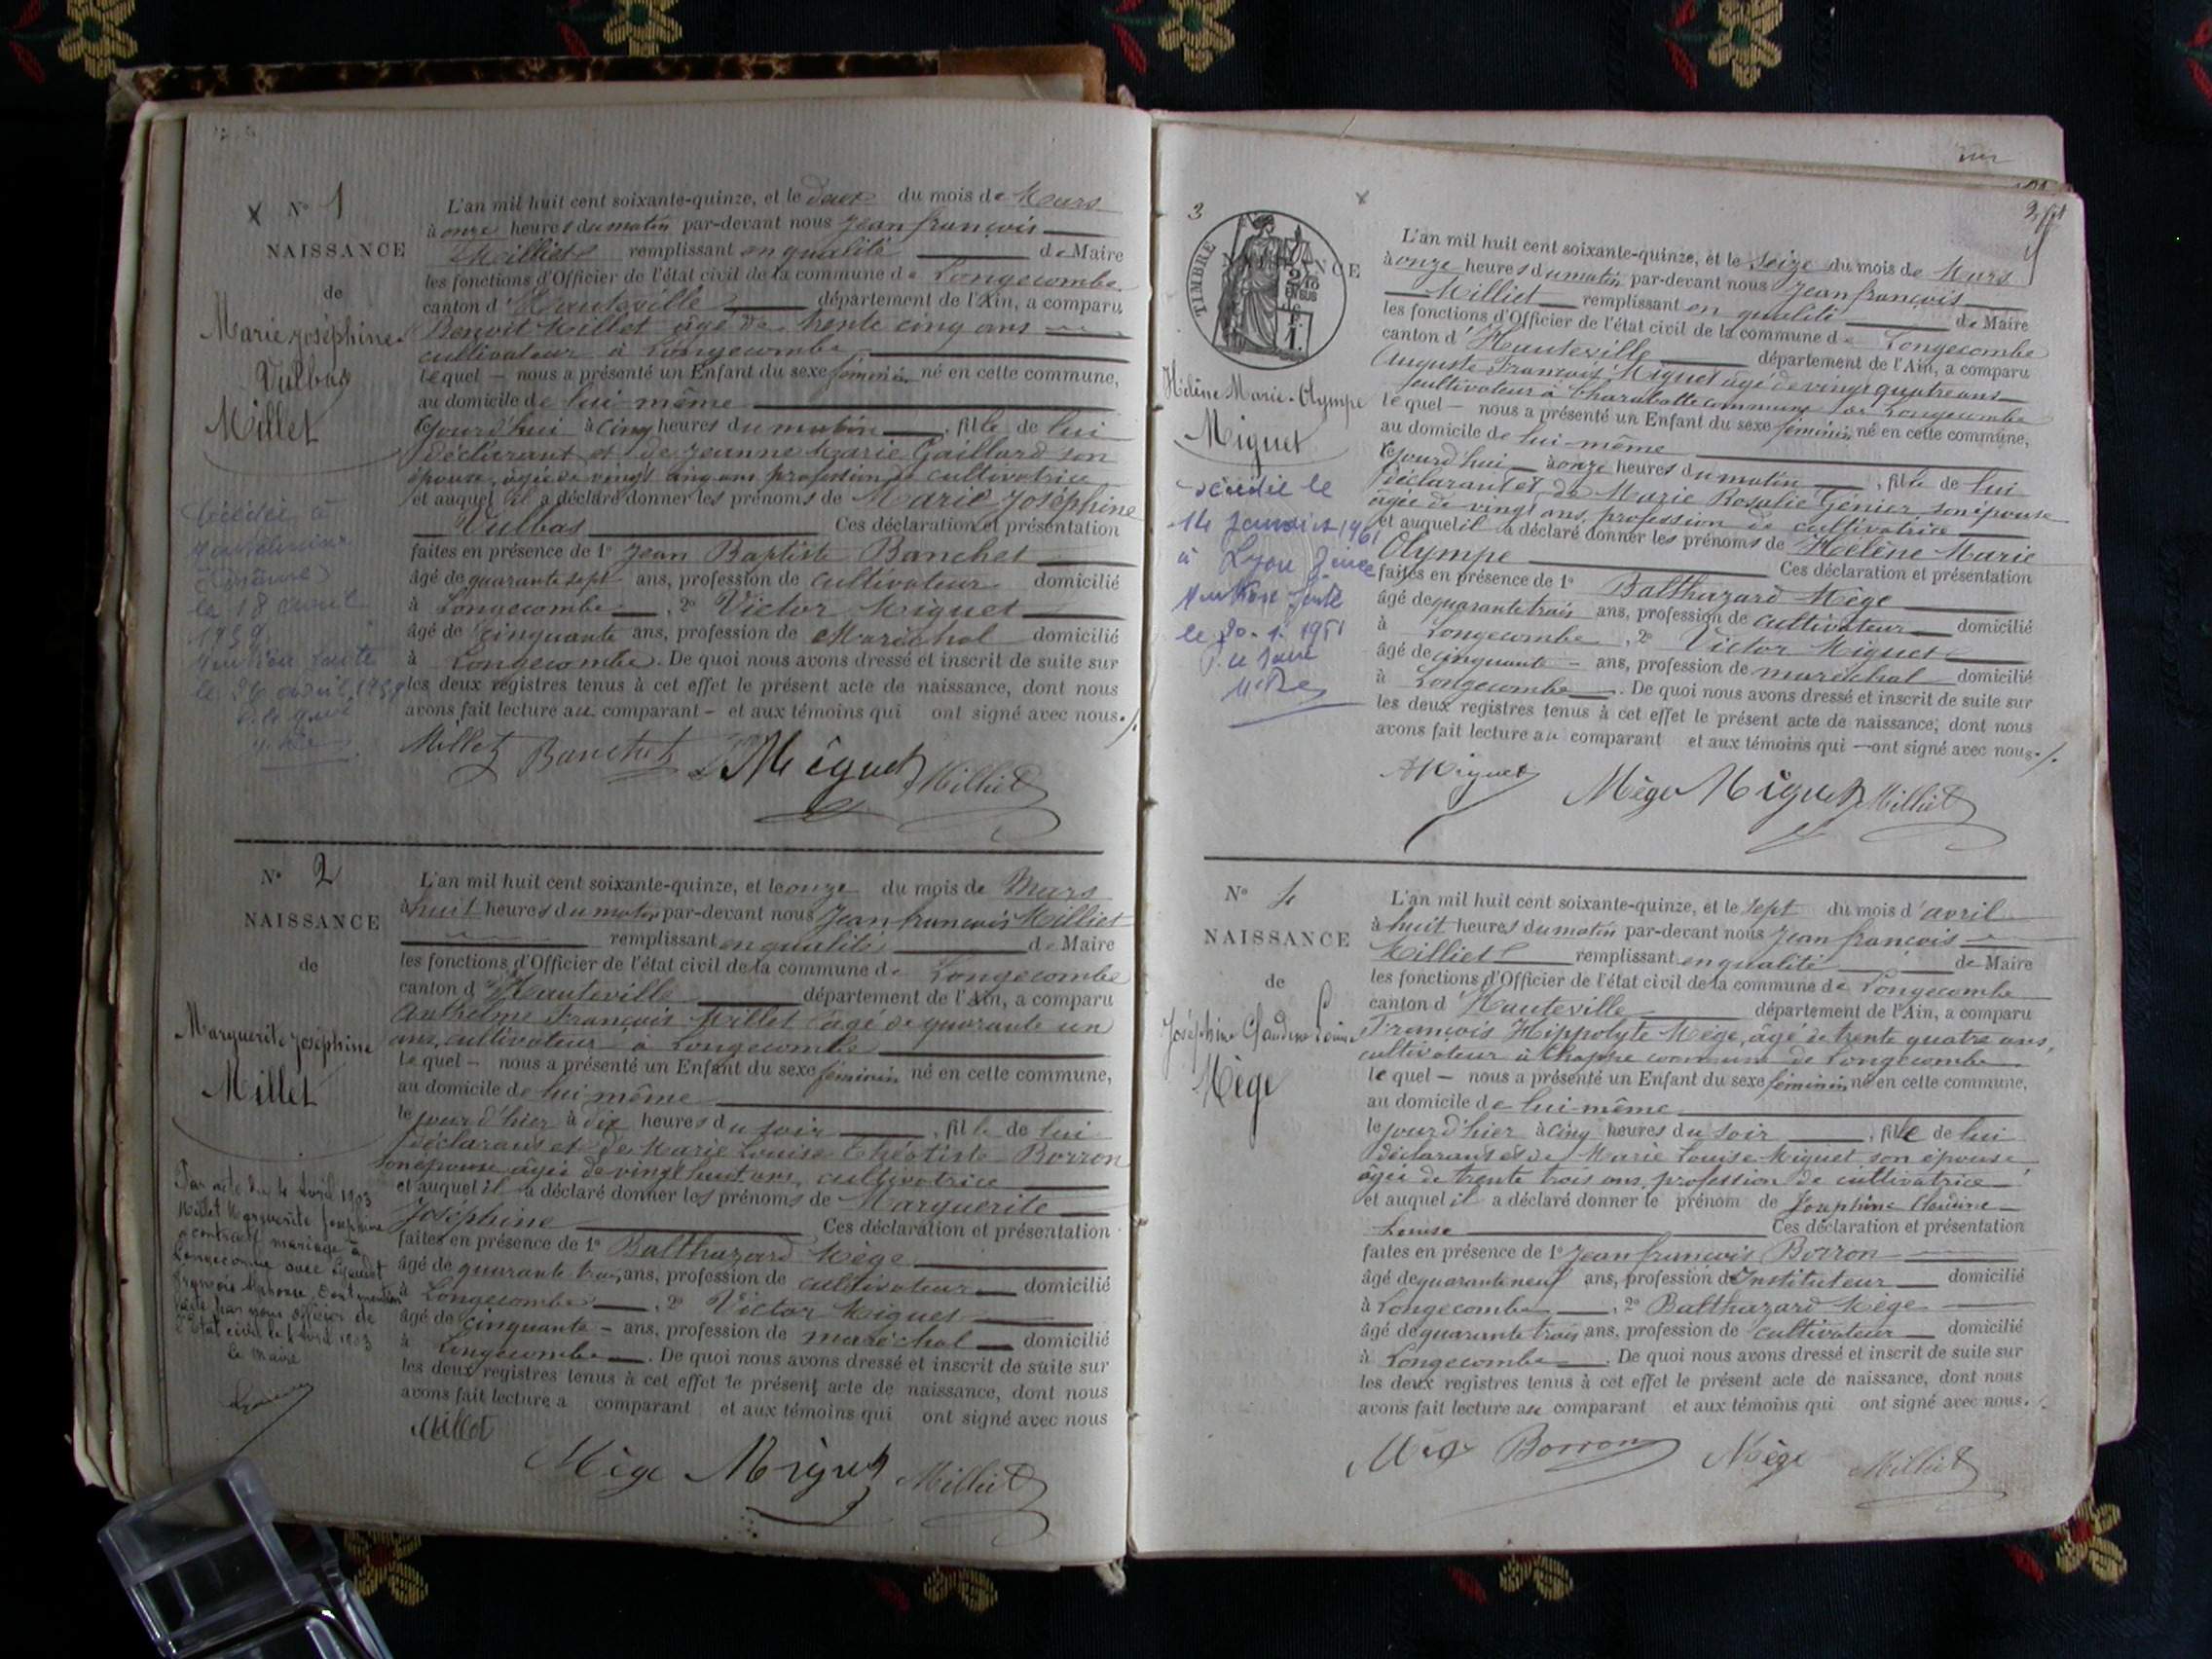 N° 1
NAISSANCE
de
Marie Joséphine
Vulbas
Millet
Décédée à
le 18 avril
1959
le 26 avril 1959
L'an mil huit cent soixante-quinze, et le deux du mois de Mars
à onze heures du matin par-devant nous Jean françois
Milliet remplissant en qualité de Maire
les fonctions d'Officier de l'état civil de la commune de Longecombe
canton d'Hauteville département de l'Ain, a comparu
Benoit Millet âgé de trente cinq ans
cultivateur à Longecombe
lequel nous a présenté un Enfant du sexe féminin né en cette commune,
au domicile de lui-même
cejourd'hui à cinq heures du matin, fille de lui
déclarant et de Jeanne Marie Gaillard son
épouse, âgée de vingt cinq ans profession de cultivatrice
et auquel il a déclaré donner les prénoms de Marie Joséphine
Vulbas Ces déclaration et présentation
faites en présence de 1° Jean Baptiste Banchet
âgé de quarante sept ans, profession de cultivateur domicilié
à Longecombe, 2° Victor Miguet
âgé de cinquante ans, profession de Maréchal domicilié
à Longecombe. De quoi nous avons dressé et inscrit de suite sur
les deux registres tenus à cet effet le présent acte de naissance, dont nous
avons fait lecture au comparant - et aux témoins qui ont signé avec nous./.
Millet Banchet Miguet Milliet
N° 2
NAISSANCE
de
Marguerite Joséphine
Millet
Par acte du 4 Avril 1903
Millet Marguerite Joséphine
a contracté mariage à
Longecombe avec
François Alphonse, Dont mention
faite par nous officier de
l'Etat civil le 4 Avril 1903
Le Maire
L'an mil huit cent soixante-quinze, et le onze du mois de Mars
à huit heures du matin par-devant nous Jean françois Milliet
remplissant en qualité de Maire
les fonctions d'Officier de l'état civil de la commune de Longecombe
canton d'Hauteville département de l'Ain, a comparu
Anthelme François Millet âgé de quarante un
ans, cultivateur à Longecombe
lequel - nous a présenté un Enfant du sexe féminin né en cette commune,
au domicile de lui-même
le jour d'hier à dix heures du soir, fille de lui
déclarant et de Marie Louise Théotiste Borron
son épouse âgée de vingt huit ans, cultivatrice
et auquel il a déclaré donner les prénoms de Marguerite
Joséphine Ces déclaration et présentation
faites en présence de 1° Balthazard Mège
âgé de quarante trois ans, profession de cultivateur domicilié
à Longecombe, 2° Victor Miguet
âgé de cinquante - ans, profession de maréchal domicilié
à Longecombe. De quoi nous avons dressé et inscrit de suite sur
les deux registres tenus à cet effet le présent acte de naissance, dont nous
avons fait lecture a comparant et aux témoins qui ont signé avec nous
Millet
Mège Miguet Milliet
3
TIMBRE
2/10
EN SUS
1.
Hélène Marie-Olympe
Miguet
Décédée le
14 janvier 1961
à Lyon 3ème
le 20.1.1961
L'an mil huit cent soixante-quinze, et le seize du mois de Mars
à onze heures du matin par-devant nous Jean françois
Milliet remplissant en qualité de Maire
les fonctions d'Officier de l'état civil de la commune de Longecombe
canton d'Hauteville département de l'Ain, a comparu
Auguste François Miguet âgé de vingt quatre ans
cultivateur à Charabotte commune de Longecombe
lequel - nous a présenté un Enfant du sexe féminin né en cette commune,
au domicile de lui-même
cejourd'hui à onze heures du matin, fille de lui
déclarant et de Marie Rosalie Génier son épouse
âgée de vingt ans, profession de cultivatrice
et auquel il a déclaré donner les prénoms de Hélène Marie
Olympe Ces déclaration et présentation
faites en présence de 1° Balthazard Mège
âgé de quarante trois ans, profession de cultivateur domicilié
à Longecombe, 2° Victor Miguet
âgé de cinquante - ans, profession de maréchal domicilié
à Longecombe. De quoi nous avons dressé et inscrit de suite sur
les deux registres tenus à cet effet le présent acte de naissance, dont nous
avons fait lecture au comparant et aux témoins qui - ont signé avec nous./.
A Miguet Mège Miguet Milliet
N° 4
NAISSANCE
de
Joséphine Claudine Louise
Mège
L'an mil huit cent soixante-quinze, et le sept du mois d'avril
à huit heures du matin par-devant nous Jean françois
Milliet remplissant en qualité de Maire
les fonctions d'Officier de l'état civil de la commune de Longecombe
canton d'Hauteville département de l'Ain, a comparu
François Hippolyte Mège, âgé de trente quatre ans,
cultivateur à Chappe commune de Longecombe
lequel - nous a présenté un Enfant du sexe féminin né en cette commune,
au domicile de lui-même
le jour d'hier à cinq heures du soir, fille de lui
déclarant et de Marie Louise Miguet son épouse
âgée de trente trois ans, profession de cultivatrice
et auquel il a déclaré donner le prénom de Joséphine Claudine
Louise Ces déclaration et présentation
faites en présence de 1° Jean françois Borron
âgé de quarante neuf ans, profession d'Instituteur domicilié
à Longecombe, 2° Balthazard Mège
âgé de quarante trois ans, profession de cultivateur domicilié
à Longecombe. De quoi nous avons dressé et inscrit de suite sur
les deux registres tenus à cet effet le présent acte de naissance, dont nous
avons fait lecture au comparant et aux témoins qui ont signé avec nous./.
Mège Borron Mège Milliet